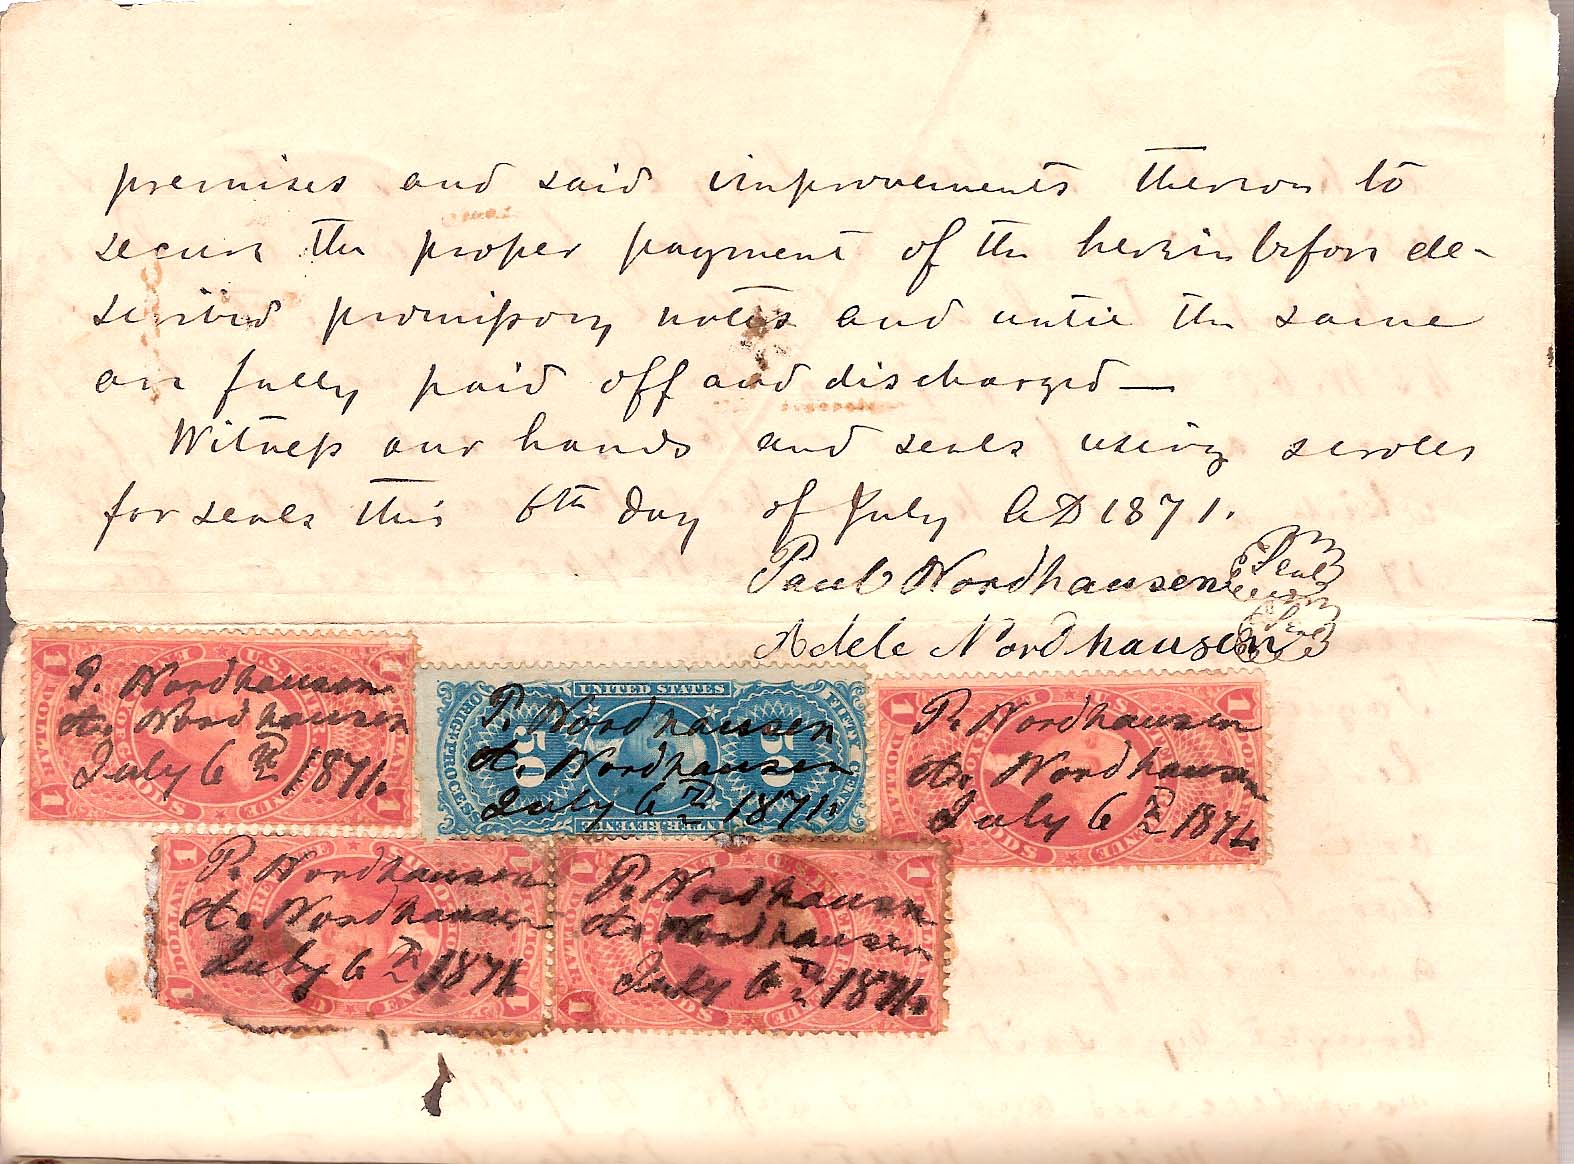 premises and said improvements thereon to
secure the proper payment of the herein before de-
scribed promissory notes and until the same
are fully paid off and discharged—
Witness our hands and seals using scrolls
for seals this 6th day of July AD 1871.
Paul Nordhausen Seal
Adele Nordhausen Seal
1 U.S. INTER. REV. 1
DOLLAR FORECLOSURE DOLLAR
P. Nordhausen
A. Nordhausen
July 6th 1871.
UNITED STATES
50 50
FIFTY CENTS
INTER. REVENUE
P. Nordhausen
A. Nordhausen
July 6th 1871.
1 U.S. INTER. REVENUE 1
DOLLAR DOLLAR
P. Nordhausen
A. Nordhausen
July 6th 1871.
1
DOLLAR
P. Nordhausen
A. Nordhausen
July 6th 1871
1 1
DOLLAR
P. Nordhausen
A. Nordhausen
July 6th 1871.